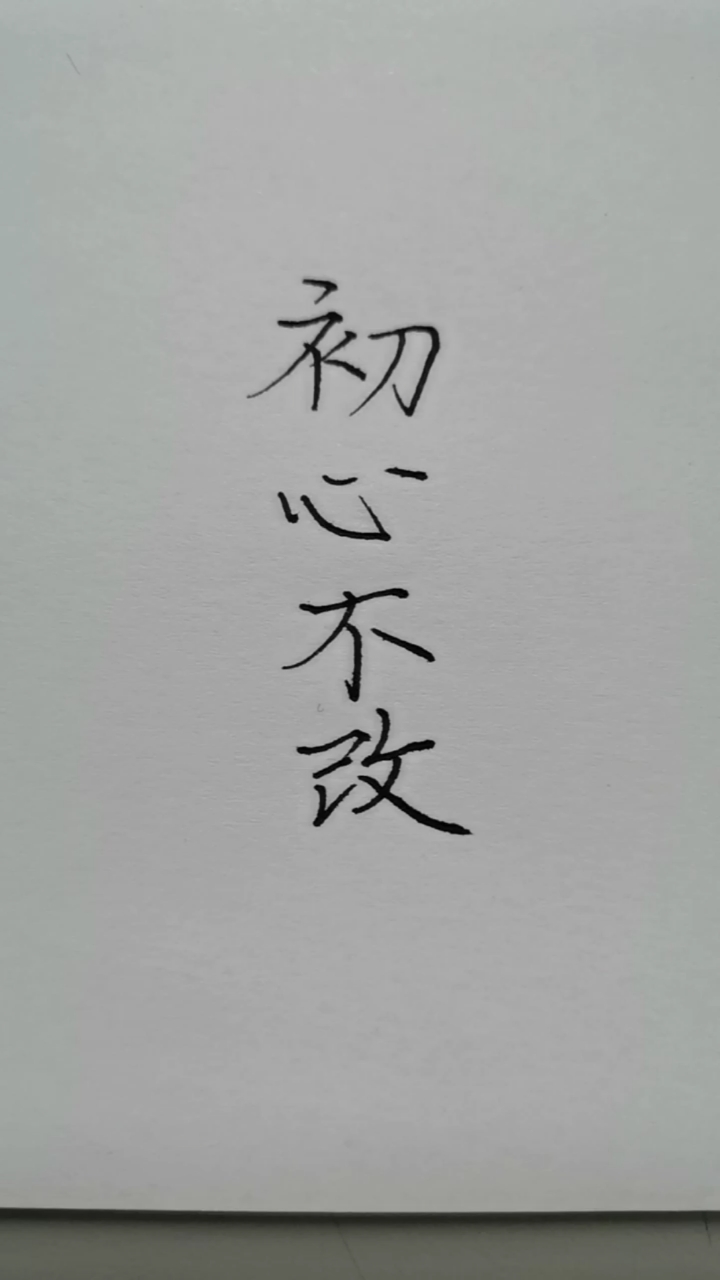 初心不改